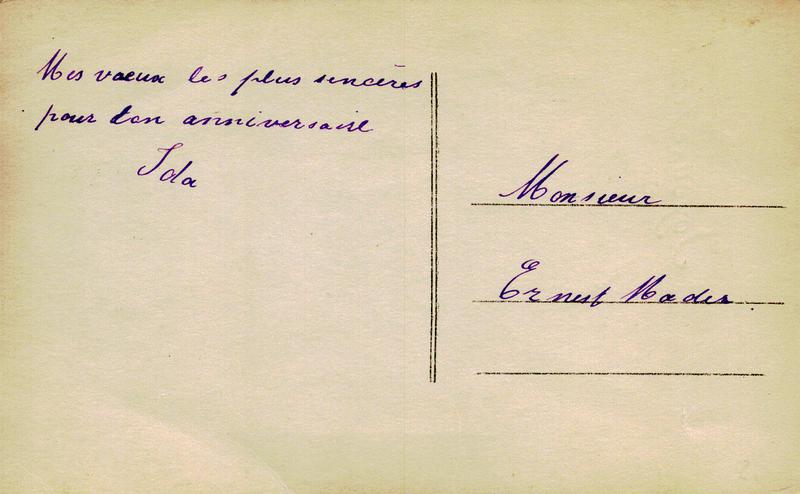 Mes vœux les plus sincères
pour ton anniversaire
Ida
Monsieur
Ernest Mader